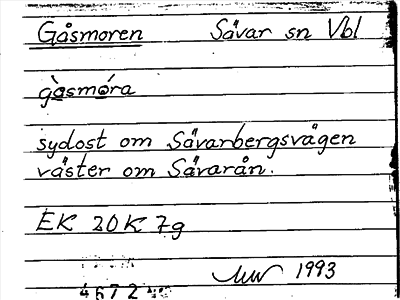 Gåsmoren Sävar sn Vbl
gåsmóra
sydost om Sävarbergsvägen
väster om Sävarån.
EK 20K 7g
1993
4672